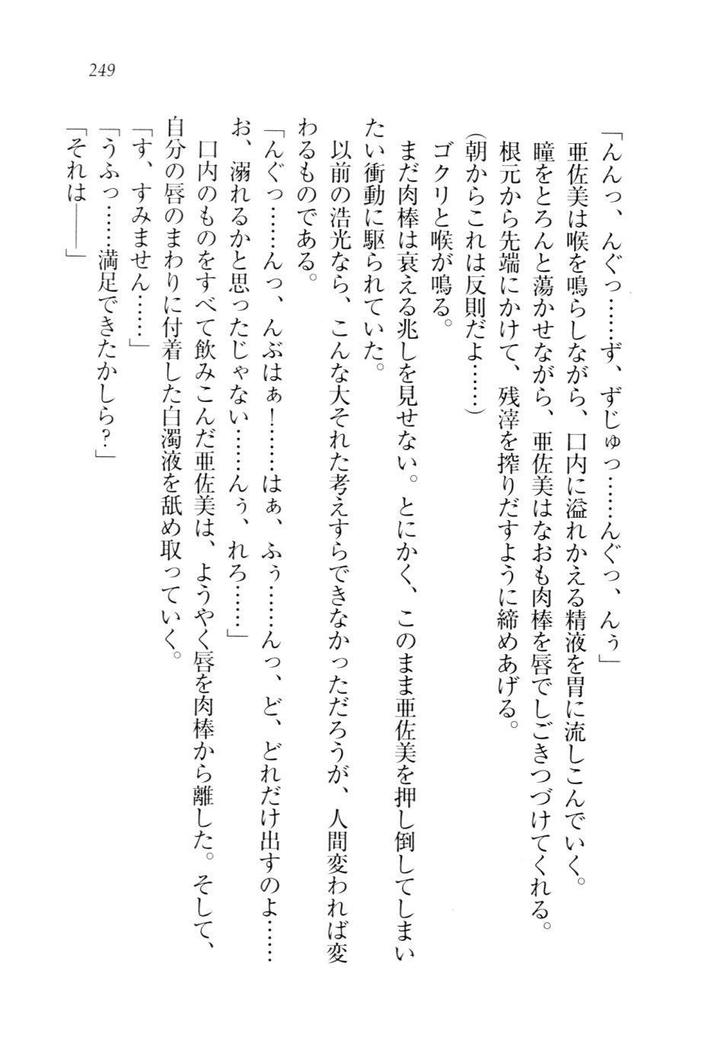 249
「んんっ、んぐっ……ず、ずじゅっ……んぐっ、んぅ」
亜佐美は喉を鳴らしながら、口内に溢れかえる精液を胃に流しこんでいく。
瞳をとろんと蕩かせながら、亜佐美はなおも肉棒を唇でしごきつづけてくれる。
根元から先端にかけて、残滓を搾りだすように締めあげる。
(朝からこれは反則だよ……)
ゴクリと喉が鳴る。
まだ肉棒は衰える兆しを見せない。とにかく、このまま亜佐美を押し倒してしまい
たい衝動に駆られていた。
以前の浩光なら、こんな大それた考えすらできなかっただろうが、人間変われば変
わるものである。
「んぐっ……んっ、んぶはぁ！……はぁ、ふぅ……んっ、ど、どれだけ出すのよ……
お、溺れるかと思ったじゃない……んぅ、れろ……」
口内のものをすべて飲みこんだ亜佐美は、ようやく唇を肉棒から離した。そして、
自分の唇のまわりに付着した白濁液を舐め取っていく。
「す、すみません……」
「うふっ……満足できたかしら？」
「それは――」